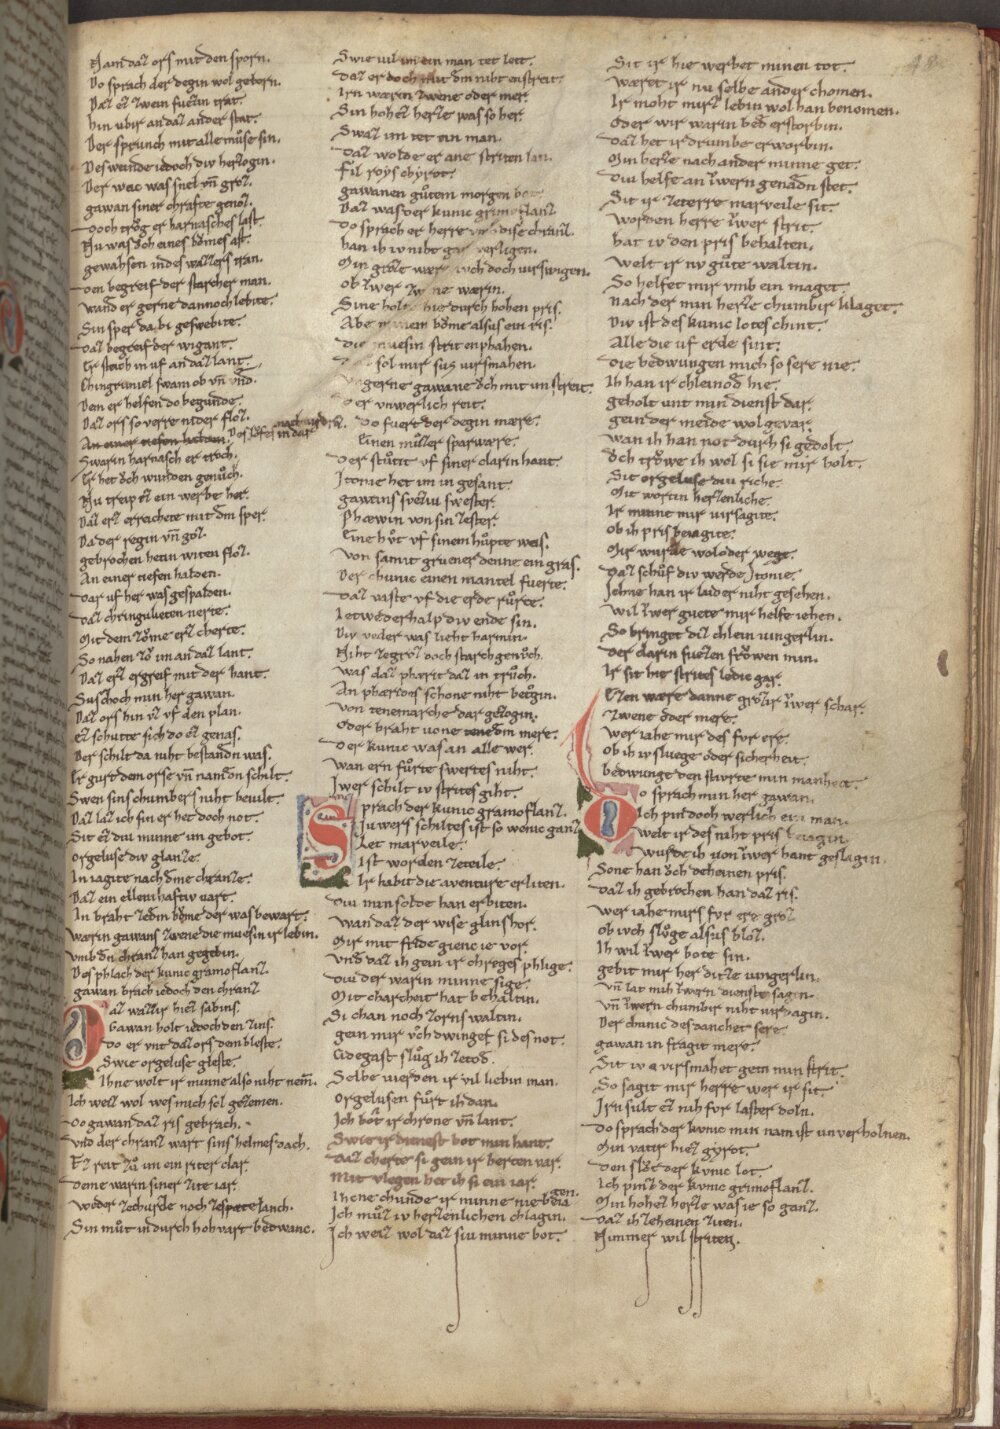 Nam daz ors mit den sporn.
Do sprach der degin wol geborn.
Daz ez zwein fuezin trat.
hin ubir an daz ander stat.
Der sprunch mit alle muose sin.
Des weinde iedoch div herzogin.
Der wac was snel vn̄ groz.
gawan siner chrafte genoz.
Doch truog er harnasches last.
Nu was ovch eines bovmes ast.
gewahsen in des wazzers tran.
Den begreif der starcher man.
wand er gerne dannoch lebite.
Sin sper da bi geswebite.
Daz begreif der wigant.
Er steich in uf an daz lant.
Chringuniel swam ob vn̄ vnd.
Dem er helfen do begunde.
Daz ors so verre nider floz.
An einer tiefen halden
Swarin harnasch er troch.
Er het ovch wunden genuoch.
Nu treip ez ein werbe her.
Daz erz erreichete mit dem sper.
Da der regin vn̄ goz.
gebrochen hetin witen floz.
An einer tiefen halden.
Dar uf her was gespalden.
Daz chringulieten nerte.
Mit dem zovme erz cherte.
So nahen zov im an daz lant.
Daz erz ergreif mit der hant.
Sus zoch min her gawan.
Daz ors hin vz vf den plan.
Ez schutte sich do ez genas.
Der schilt da niht bestandn was.
Er gurt dem orse vn̄ nam den schilt.
Swen sins chumbers niht bevilt.
Daz laz ich sin er het doch not.
Sit ez diu minne im gebot.
Orgeluse div glanze.
In iagite nach dme chranze.
Daz ein ellenthaftiv vart.
In braht zedm bovme der was bewart.
wærin gawans zwene die muesin ir lebin.
vmb dn chranz han gegebin.
Des phlach der kunic gramoflanz.
gawan brach iedoch den chranz
Daz wazzir hiez sabins.
Gawan holt iedoch den zins.
Do er vnt daz ors den bleste.
Swie orgeluse gleste.
Ih ne wolt ir minne also niht nem̄.
Ich weiz wol wes mich sol gezemen.
Do gawan daz ris gebrach.
vnd der chranz wart sins helmes dach.
Ez reit zuo im ein riter clar.
Deme warn siner zite iar.
weder zechurze noch zespete lanch.
Sin muot in durch hohvart bedwanc.
Swie vil im ein man tet leit.
Daz er doch mit dm niht enstreit.
Irn wærn zwene oder mer.
Sin hohez herze was so her.
Swaz im tet ein man.
Daz wolde er ane striten lan.
Fil roys ehyrot.
gawanen guotem morgen bot.
Daz was der kunic gramoflanz
Do sprach er herre vmb dise chranz.
han ih iv niht gar verzigen.
Min gruoz wær ovch doch virswigen.
ob iwer zwene wærin.
Sine holt hie durch hohen pris.
Abe minem bovme alsus ein ris.
Die muesin strit enphahen.
Daz sol mir sus virsmahen.
Vngerne gawane ovch mit im streit.
Do er vnwerlich reit.
Do fuert der degin mære.
Einen muozzer sparwære.
Der stuont vf siner clarin hant.
Itonie het im in gesant.
gawins svezzu swester.
Phæwin von sinzester.
Eine huot vf sinem huopte was.
Von samit gruener denne ein gras.
Der chunic einen mantel fuerte.
Daz vaste vf die erde ruorte.
Ietwederhalp div ende sin.
Div veder was lieht harmin.
Niht zegroz doch starch genuoch.
Was daz pharit daz in truoch.
An phærdes schone niht betrogin.
Von tenemarche dar gezogin.
Oder braht uone tenedm mere.
Der kunic was an alle wer.
wan ern fuorte swertes niht.
Iwer schilt iv strites giht.
Sprach der kunic gramoflanz.
Iuwers schiltes ist so wenic ganz
Let marveile.
Ist worden zeteile.
Ir habit die aventure erliten.
Diu min solde han erbiten.
wan daz der wise glinshor.
Mir mit fride gienc ie vor.
vnd daz ih gein ir chreges phlige.
Diu der warin minne sige.
Mit charcheit hat behaltin.
Si chan noch zorns waltin.
gein mir vovch dwinget si des not.
Cidegast sluog ih zetod.
Selbe vierden ir vil liebin man.
Orgelusen fuort ih dan.
Ich bot ir chrone vn̄ lant.
Swie ir dienest bot min hant.
Daz cherte si gein ir herten var.
Mit vlegen het ih si ein iar.
Ih ne chunde ir minne nie beiagen.
Ich muoz iv herzenlichen chlagin.
Ich weiz wol daz siu minne bot.
Sit ir hie werbet minen tot.
wæret ir nu selbe ander chomen.
Ir moht mirz lebin wol han benomen.
Oder wir warin bed erstorbin.
Daz het ir drumbe erworbin.
Min herze nach ander minne get.
Diu helfe an iwern genadn stet.
Sit ir zeterre marveile sit.
worden herre iwer strit.
hat iv den pris behalten.
welt ir nv guote waltin.
So helfet mir vmb ein maget.
Nach der min herze chumbir klaget.
Div ist des kunic lotes chint.
Alle die uf erde sint.
Die bedwungen mich so sere nie.
Ih han ir chleinod hie.
geholt unt min dienst dar.
gein der meide wol gevar.
wan ih han not durh si gedolt.
ovch trovwe ih wol si sie mir holt.
Sit orgeluse diu riche.
Mit wortin herzenliche.
Ir minne mir uirsagite.
ob ih pris beiagite.
Mir wurde wol oder wege.
Daz schuof div werde Itonie.
Ichne han ir laider niht gesehen.
wil iwer guete mir helfe iehen.
So bringet diz chlein uingerlin.
Der clarin suezen frovwen min.
Ir sit hie strites ledic gar.
Ezen ware danne grozir iwer schar.
Zwene oder mere.
wer iahe mir des fvr ere.
ob ih iv sluege oder sicherheit.
bedwunge den stwrte min manheit.
Do sprach min her gawan.
Ich pin doch werlich ein man.
welt ir des niht pris beiagin.
wurde ih von iwer hant geslagin.
Sone han ovch deheinen pris.
Daz ih gebrochen han daz ris.
wer iahe mirs fvr ere groz
ob ivch sluoge alsus bloz.
Ih wil iwer bote sin.
gebit mir her ditze uingerlin.
Vn̄ lat mih iwern dienste sagin.
Vn̄ iwern chumbir niht virdagin.
Der chunic des danchet sere.
gawan in fragit mere.
Sit iv a virsmahet gein min strit.
So sagit mir herre wer ir sit.
Irn sult ez nih fvr laster doln.
Do sprach der kvnic min nam ist unverholnen.
Min vatir hiez gyrot.
Den sluoc der kvnic lot.
Ich pinz der kvnic grimoflanz.
Min hohez herze was ie so ganz.
Daz ih zeheinen ziten.
Nimmer wil striten.